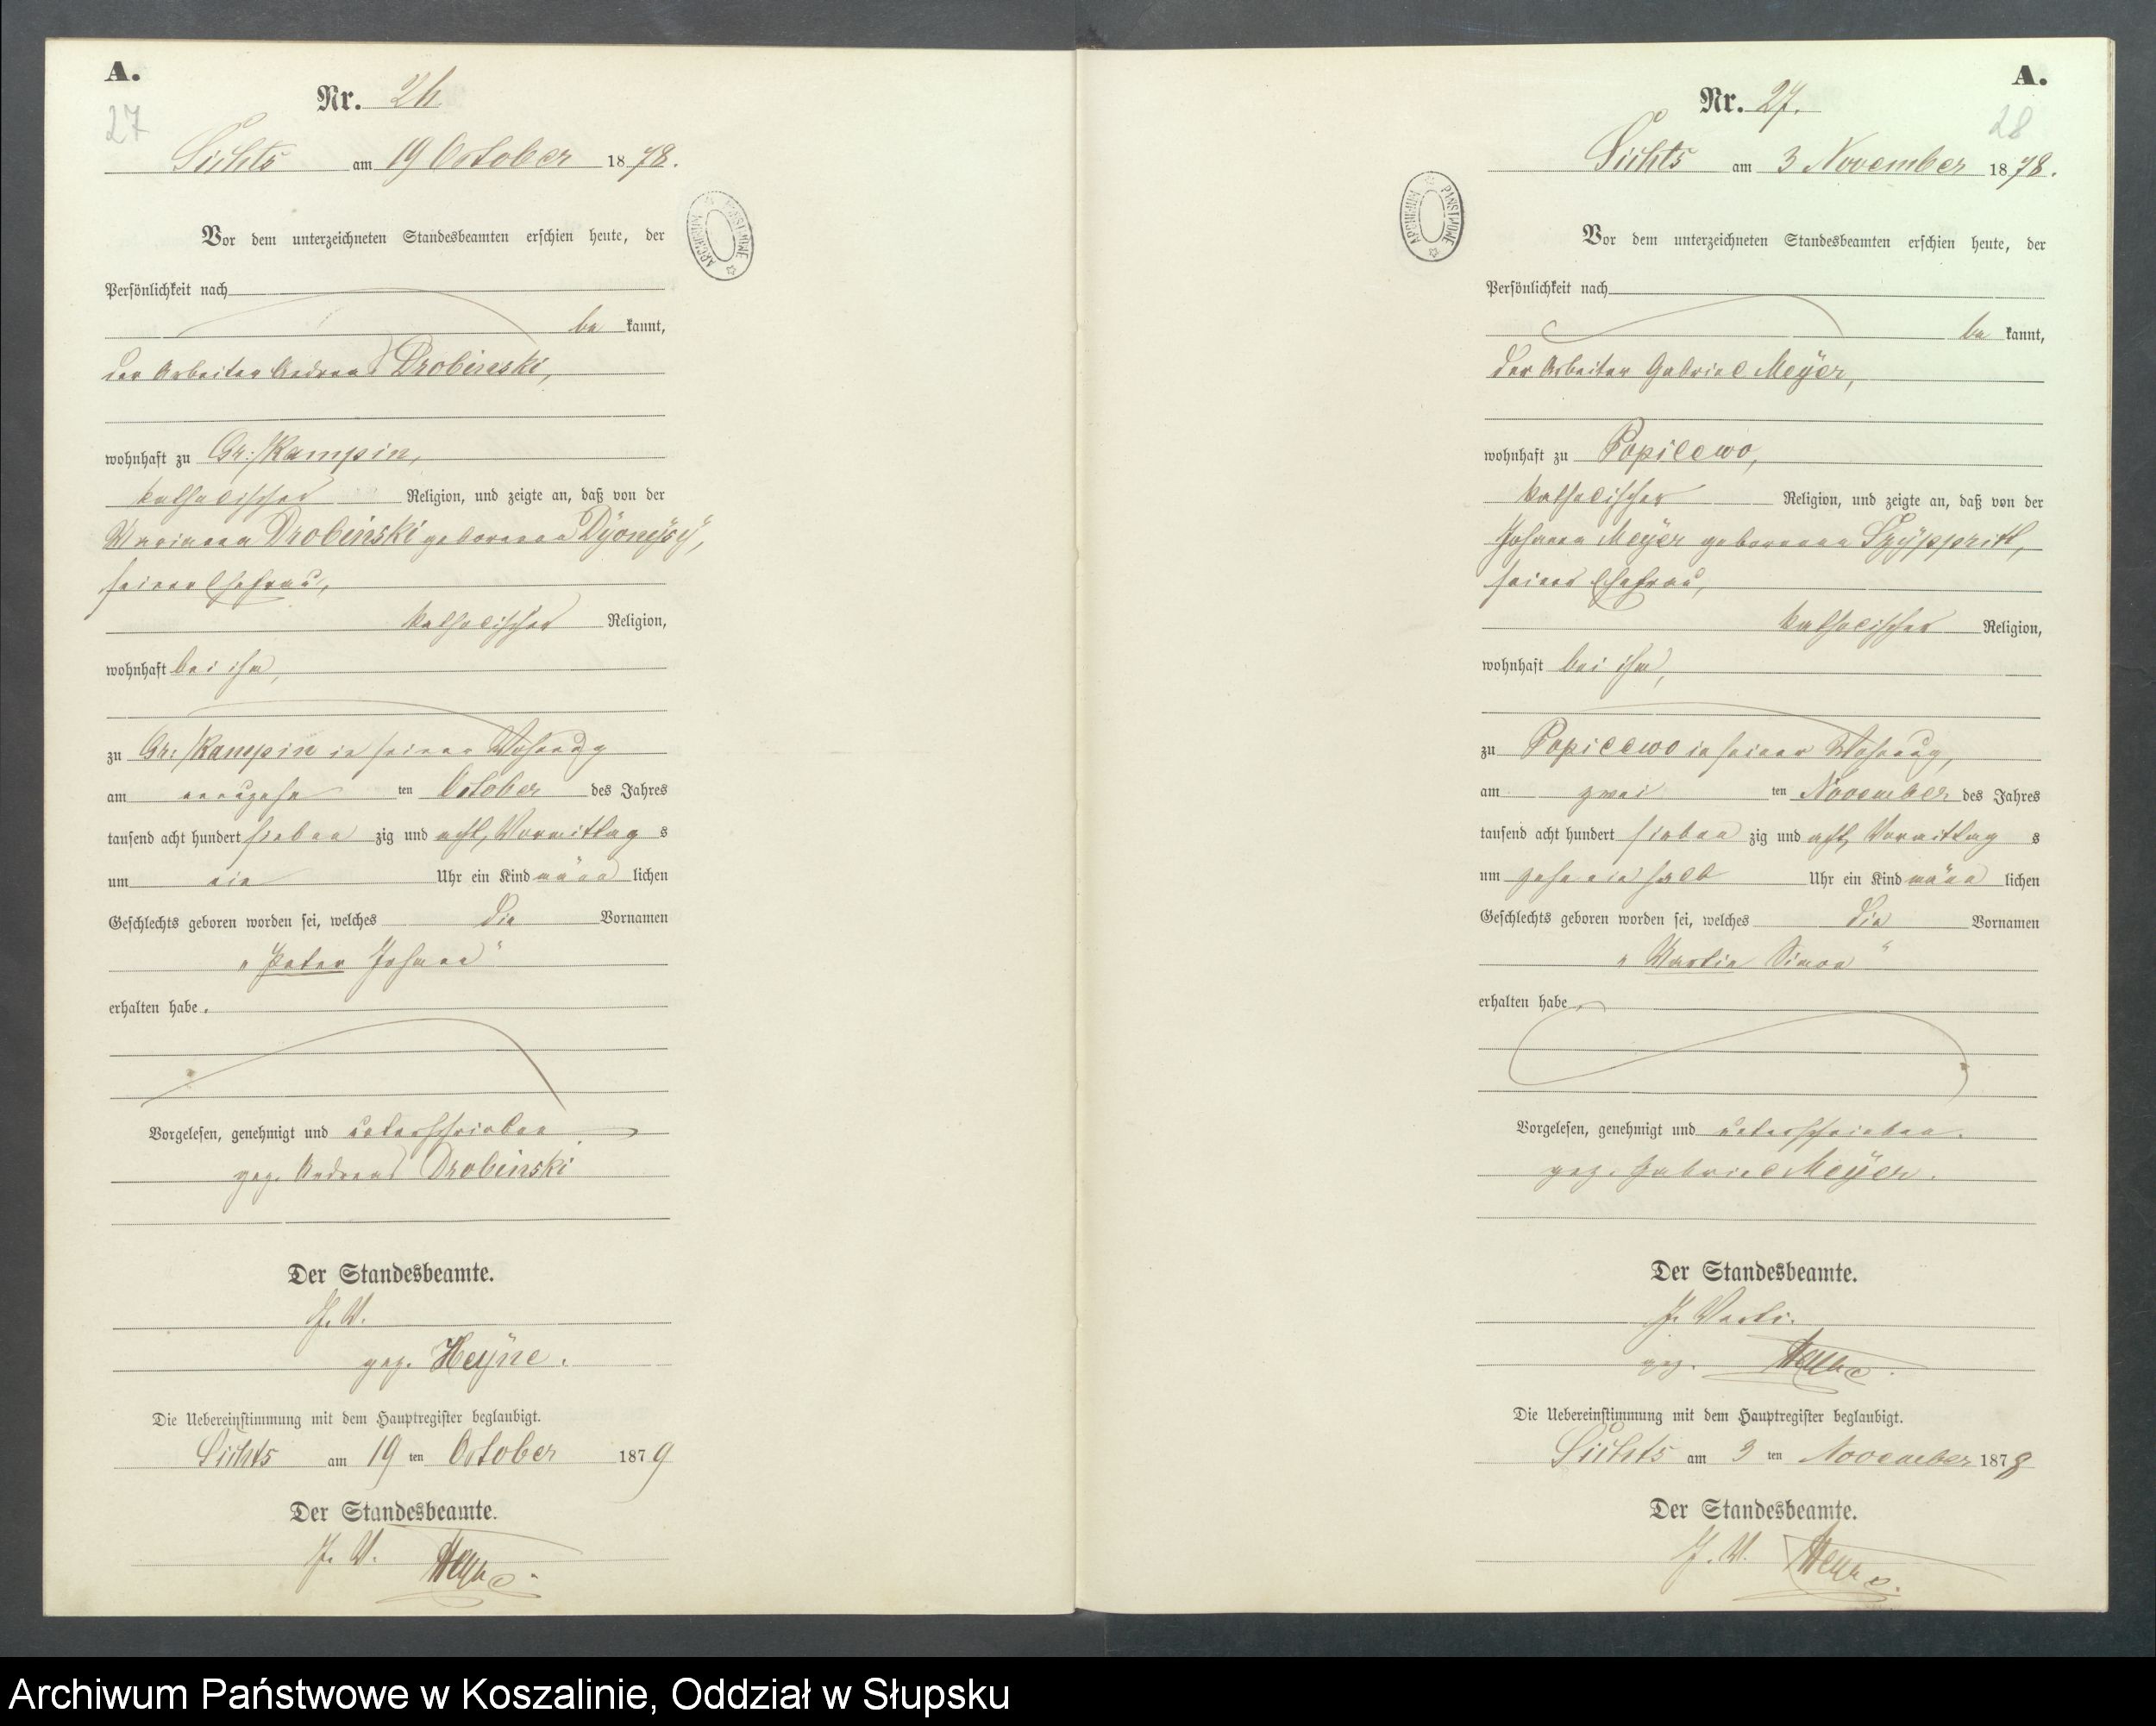 A.
27
Nr. 26
Lichts am 19 October 1878.
Vor dem unterzeichneten Standesbeamten erschien heute, der
Persönlichkeit nach
be kannt,
der Arbeiter Andreas Drobinski,
wohnhaft zu Gr: /Kampin,
katholischer Religion, und zeigte an, daß von der
Marianna Drobinski geborenen Dÿonÿsÿ,
seiner Ehefrau,
katholischer Religion,
wohnhaft bei ihm,
zu Gr: /Kampin in seiner Wohnung
am neunzehn ten October des Jahres
tausend acht hundert sieben zig und acht, Vormittag s
um ein Uhr ein Kind männ lichen
Geschlechts geboren worden sei, welches die Vornamen
„Peter Johann“
erhalten habe.
Vorgelesen, genehmigt und unterschrieben
gez. Andreas Drobinski
Der Standesbeamte.
J. V.
gez. Heÿne.
Die Uebereinstimmung mit dem Hauptregister beglaubigt.
Lichts am 19 ten October 1879
Der Standesbeamte.
J. V. Heyne.
ARCHIWUM PAŃSTWOWE
A.
28
Nr. 27.
Lichts am 3 November 1878.
Vor dem unterzeichneten Standesbeamten erschien heute, der
Persönlichkeit nach
be kannt,
der Arbeiter Gabriel Meÿer,
wohnhaft zu Popilewo,
katholischer Religion, und zeigte an, daß von der
Johanna Meÿer geborenen Szÿppritt,
seiner Ehefrau,
katholischer Religion,
wohnhaft bei ihm,
zu Popilewo in seiner Wohnung,
am zwei ten November des Jahres
tausend acht hundert sieben zig und acht, Vormittag s
um zehn ein halb Uhr ein Kind männ lichen
Geschlechts geboren worden sei, welches die Vornamen
„Martin Simon“
erhalten habe.
Vorgelesen, genehmigt und unterschrieben.
gez. Gabriel Meÿer.
Der Standesbeamte.
gez. Heyne.
Die Uebereinstimmung mit dem Hauptregister beglaubigt.
Lichts am 3 ten November 1878
Der Standesbeamte.
J. V. Heyne.
ARCHIWUM PAŃSTWOWE
Archiwum Państwowe w Koszalinie, Oddział w Słupsku